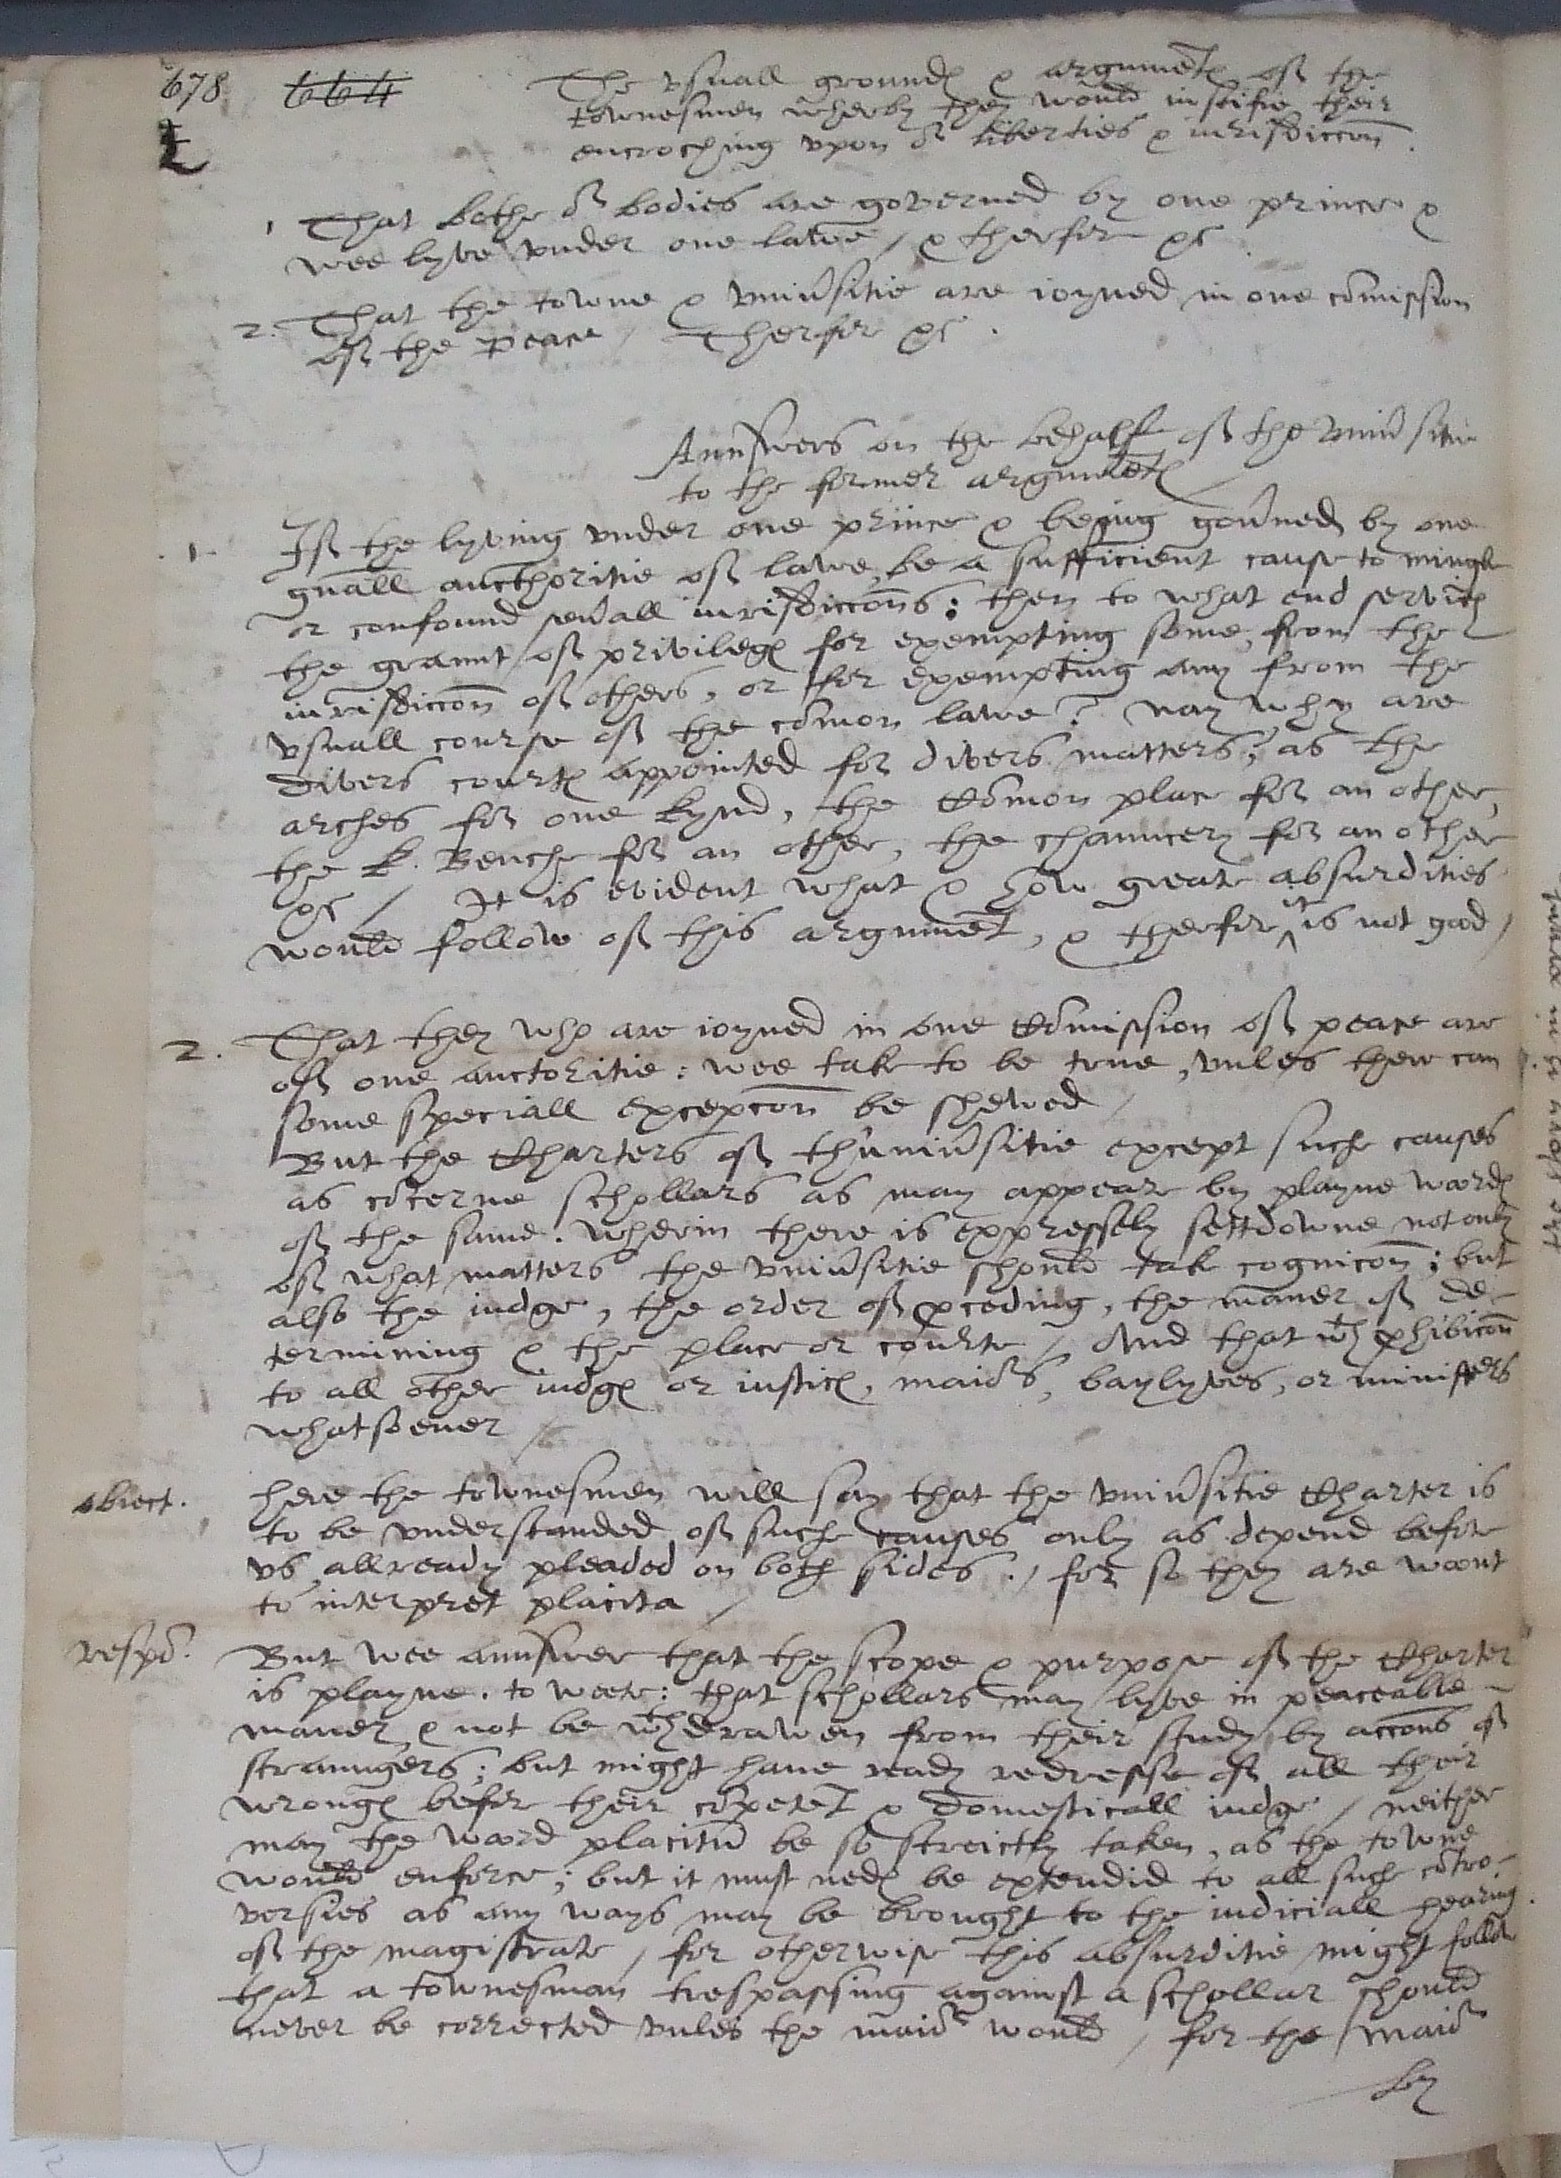 678 664
The vsuall groundes & argumentes of the
townesmen wherby they would iustifie their
encroching vpon or liberties & iurisdiccon.
1 That bothe or bodies are governed by one prince &
wee lyve vnder one lawe / & therfor &c.
2. That the towne & vniusitie are ioyned in one comission
of the peace / Therfor &c.
Annswers on the behalf of the vniusitie
to the former argumentes
1. If the lyving vnder one prince & being gouned by one
gnall aucthoritie of lawe, be a sufficient cause to mingle
or confound seuall iurisdiccons: then to what end servith
the graunt of privileges for exempting some, from the
iurisdiccon of others, or for exempting any from the
vsuall course of the comon lawe? nay why are
divers courtes appointed for divers matters; as the
arches for one kynd, the Comon place for an other,
the k. Benche for an other, the chauncery for an other
&c / It is evident what & how great absurdities
would follow of this argument, & therfor it is not good /
2. That they who are ioyned in one Comission of peace are
of one auctoritie: wee take to be true, vnles ther can
some speciall excepcon be shewed /
But the Charters of thuniusitie except such causes
as cocerne schollars as may appeare by playne wordes
of the same. wherin there is expressely sett downe not only
of what matters the vniusitie should take cognicon; but
also the iudge, the order of pceding, the maner of de-
termining & the place or courte / And that wth phibicon
to all other iudges or iustices, maiors, baylyves, or ministers
whatsoeuer /
obiect. here the townesmen will say that the vniusitie Charter is
to be vnderstanded of such causes only as depend before
vs allready pleaded on both sides. / for so they are woont
to interpret placita /
respo. But wee annswer that the scope & purpose of the Charter
is playne. to weete: that schollars may lyve in peaceable
maner & not be wthdrawen from their study by accons of
straungers; but might haue ready redresse of all their
wronges befor their copetet & domesticall iudge / neither
may the woord placitu be so streictly taken, as the towne
would enforce; but it must nedes be extendid to all such cotro-
versies as any ways may be brought to the iudiciall hearing.
of the magistrate / for otherwise this absurditie might follow
that a townesman trespassing against a schollar should
never be corrected vnles the maior would / for the maior
by